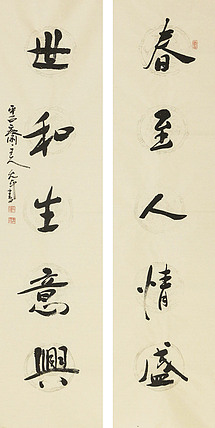 春至人情盛
世和生意興